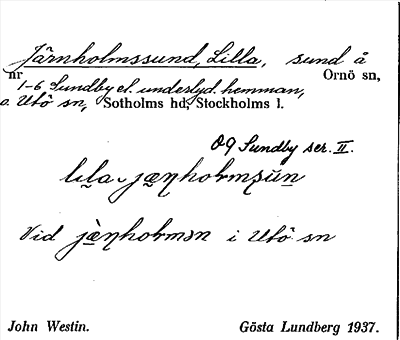 Järnholmssund, Lilla, sund å
nr Ornö sn,
1-6 Sundby el. underlyd. hemman,
o. Utö sn, Sotholms hd, Stockholms l.
09 Sundby ser. II.
lı̭la jæ̣ꞃholmsun
Vid jæ̀ꞃholmən i Utö sn
John Westin. Gösta Lundberg 1937.